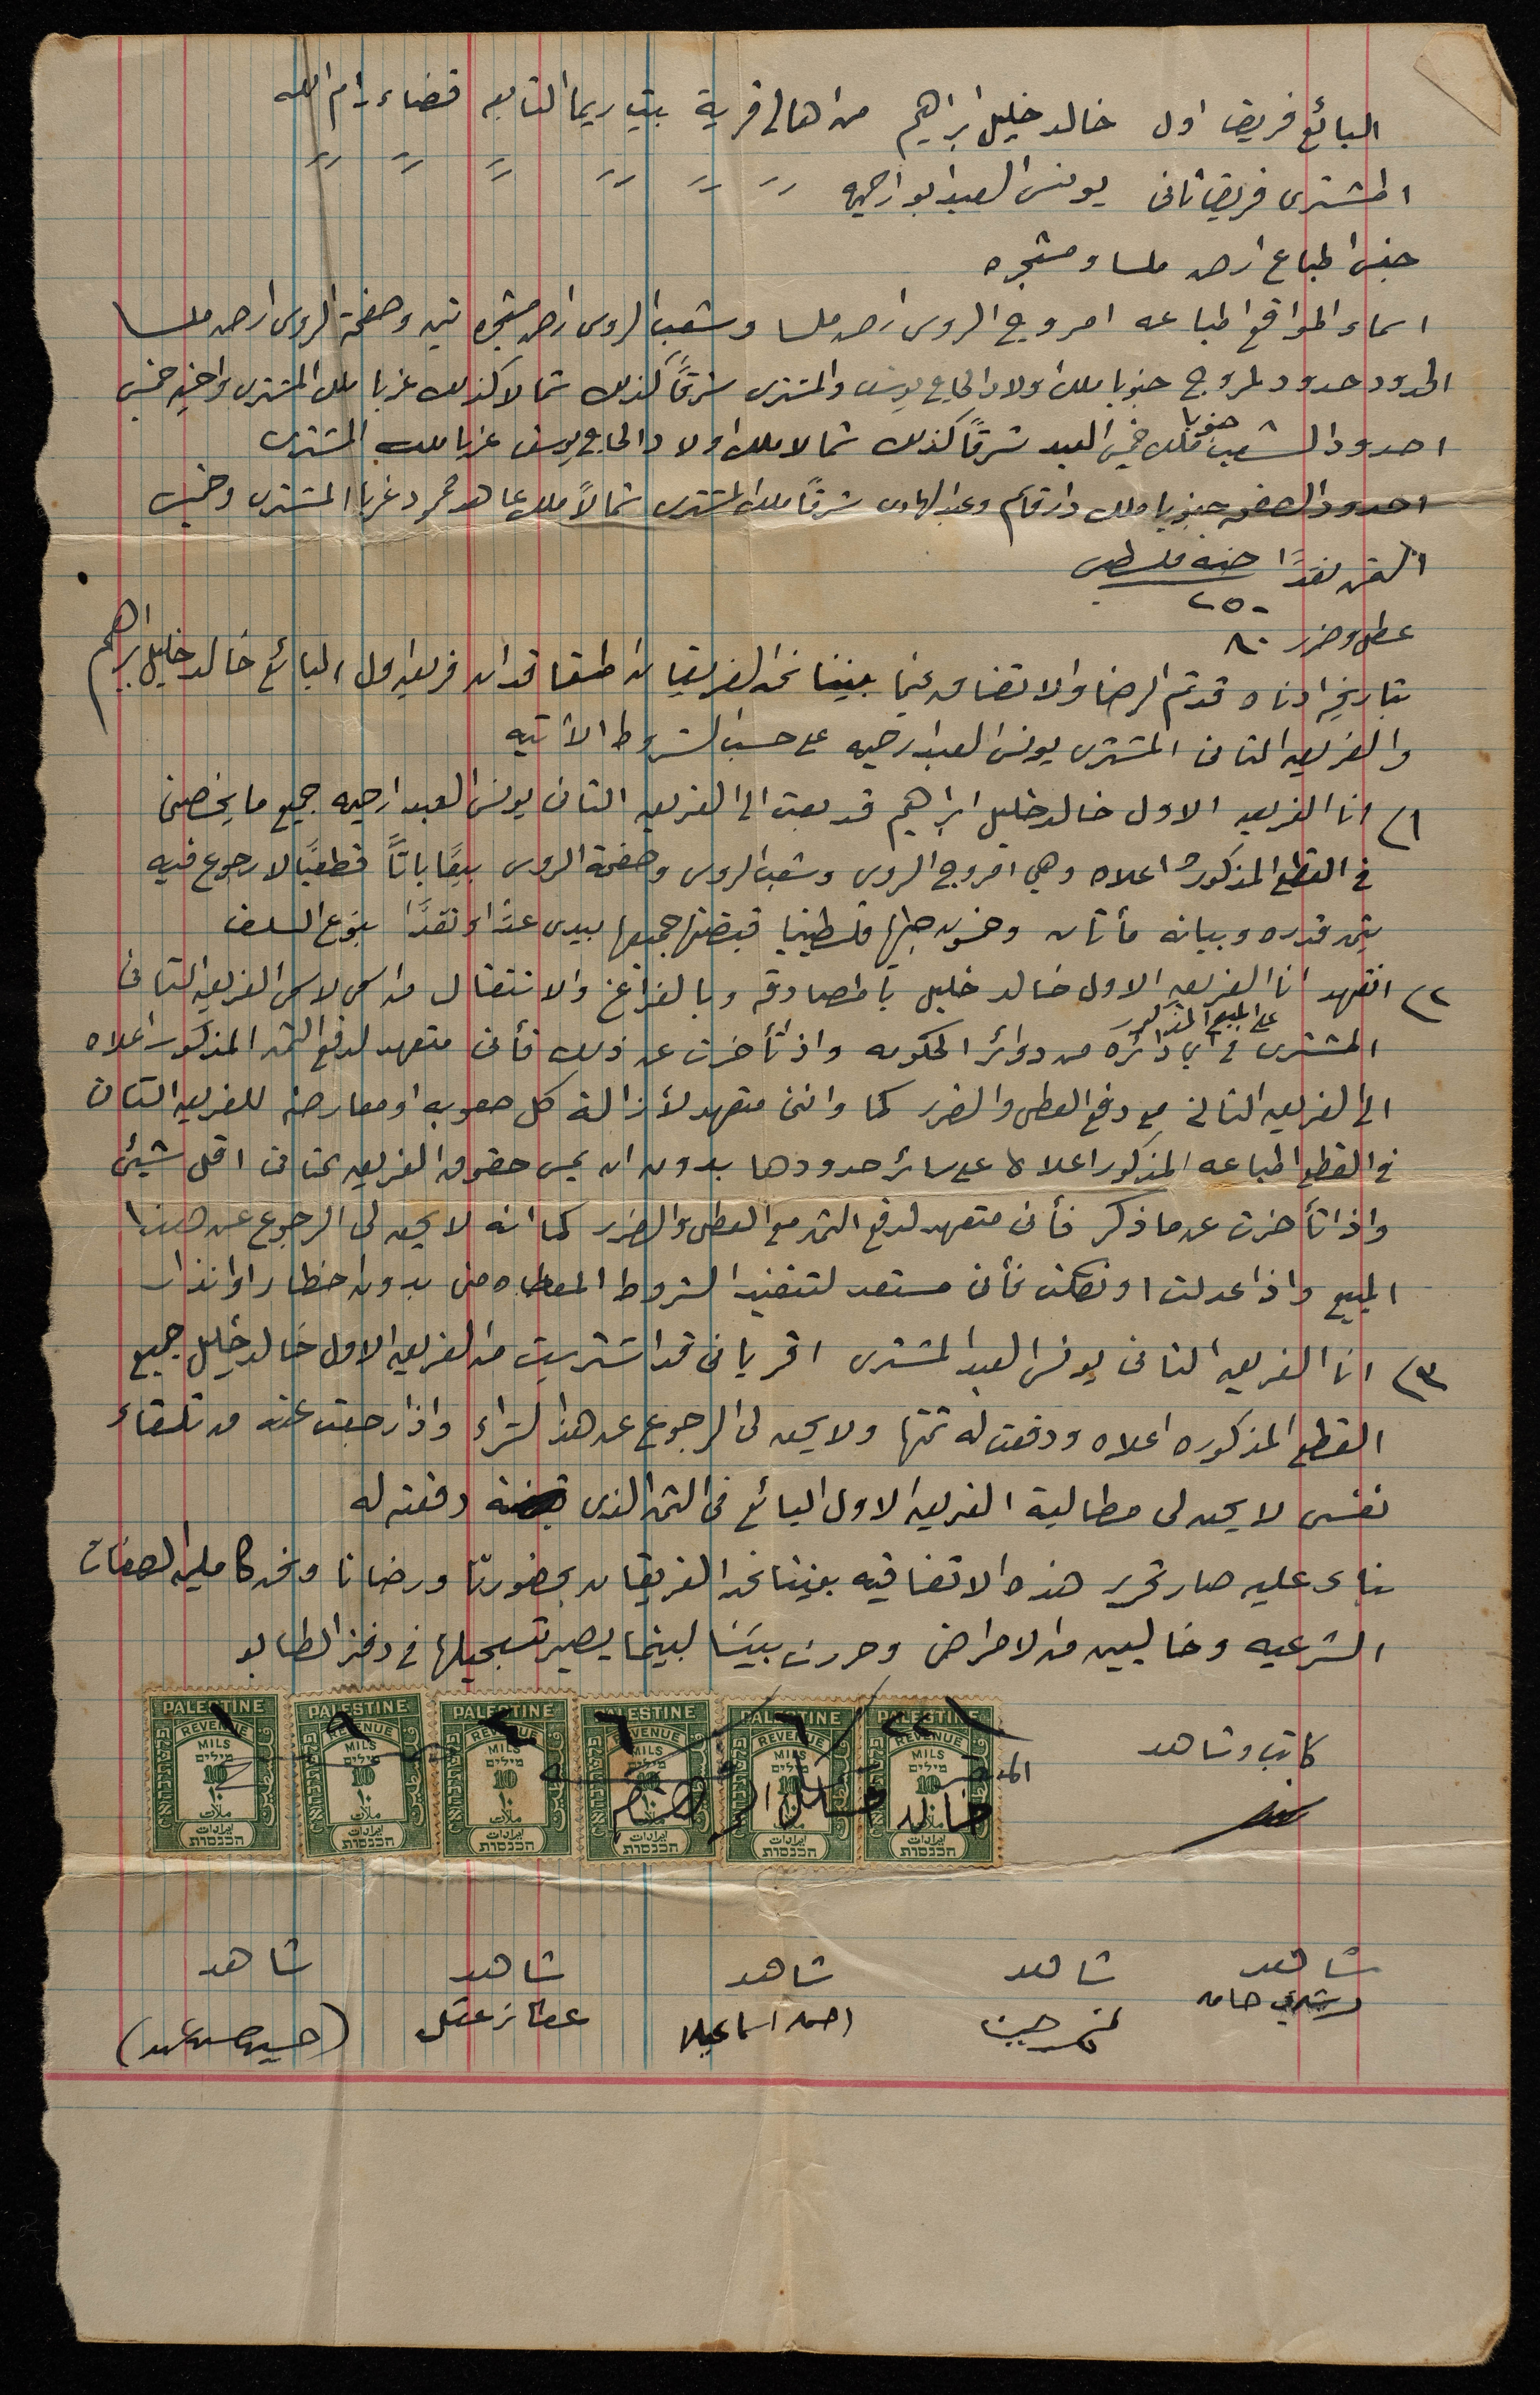 البائع فريق اول خالد خليل ابراهيم من اهالي قرية بيت ريما التابعه قضاء رام الله
المشتري فريق ثاني يونس العبد ابو ارحيه " " " " " "
جنس المباع ارض ملسا ومشجره
اسماء المواقع المباعه امروج الروس ارض ملسا وشعب الروس ارض مشجره تين وصفحة الروس ارض ملسا
الحدود حدود لمروج جنوبا ملك اولاد الحاج يوسف والمشتري شرقاً كذلك شمالا كذلك غربا ملك المشتري واخيه خميس
احدود الشعب جنوبا ملك خميس العبد شرقاً كذلك شمالا ملك اولاد الحاج يوسف غربا ملك المشتري
احدود الصفحه جنوبا ملك دار قاسم وعبد الهادي شرقاً ملك المشتري شمالاً ملك عاهد محمد وغربا المشتري وخميس
الثمن نقداً جنيه فلسطيني
٢٥٠
عطل وضرر ٨٠
بتاريخ ادناه قد تم الرضا والاتفاق فيما بيننا نحن الفريقان المتعاقدان فريق اول البائع خالد خليل ابراهيم
والفريق الثاني المشتري يونس العبد ارحيه على حسب الشروط الآتيه
١) انا الفريق الاول خالد خليل ابراهيم قد بعت الى الفريق الثاني يونس العبد ارحيه جميع ما يخصني
في القطع المذكوره اعلاه وهي امروج الروس وشعب الروس وصفحة الروس بيعًا باتاً قطعيًا لا رجوع فيه
بثمن قدره وبيانه مأتان وخمسون جنيها فلسطينيا قبضتها جميعها بيدي عدًا ونقدًا بنوع السلف
٢) اتعهد انا الفريق الاول خالد خليل بالمصادقه وبالفراغ والانتقال من اسمي لاسم الفريق الثاني
المشتري على المبيع المذكور في اي دائره من دوائر الحكومه واذا تأخرت عن ذلك فأني متعهد لدفع الثمن المذكور اعلاه
الى الفريق الثاني مع دفع العطل والضرر كما وانني متعهد لأزالة كل صعوبه او معارضه للفريق الثاني
في القطع المباعه المذكور اعلاه على سائر حدودها بدون ان يمس حقوق الفريق الثاني اقل شيئ
واذا تأخرت عن ما ذكر فأني متعهد لدفع الثمن مع العطل والضرر كما انه لا يحق لي الرجوع عن هذا
المبيع واذا عدلت او نكلت فأني مستعد لتنفيذ الشروط المعطاه مني بدون اخطار او انذار
٣) انا الفريق الثاني يونس العبد المشتري اقر باني قد اشتريت من الفريق الاول خالد خليل جميع
القطع المذكوره اعلاه ودفعت له ثمنها ولا يحق لي الرجوع عن هذا الشراء واذا رجعت عنه من تلقاء
نفسي لا يحق لي مطالبة الفريق الاول البائع في الثمن الذي دفعته له
بناء عليه صار تحرير هذه الاتفاقيه بيننا نحن الفريقان بحضورنا ورضانا ونحن كاملين الصفات
الشرعيه وخاليين من الامراض وحررت بيننا لبينما يصير تسجيلها في دفتر الطابو
كاتب وشاهد
PALESTINE PALESTINE PALESTINE PALESTINE PALESTINE PALESTINE
REVENUE REVENUE REVENUE REVENUE REVENUE REVENUE
MILS MILS MILS MILS MILS MILS
מילים מילים מילים מילים מילים מילים
10 10 10 10 10 10
١٠ ١٠ ١٠ ١٠ ١٠ ١٠
ملات ملات ملات ملات ملات ملات
ايرادات ايرادات ايرادات ايرادات ايرادات ايرادات
הכנסות הכנסות הכנסות הכנסות הכנסות הכנסות
خالد خليل ابراهيم
شاهد شاهد شاهد شاهد شاهد
احمد اسماعيل